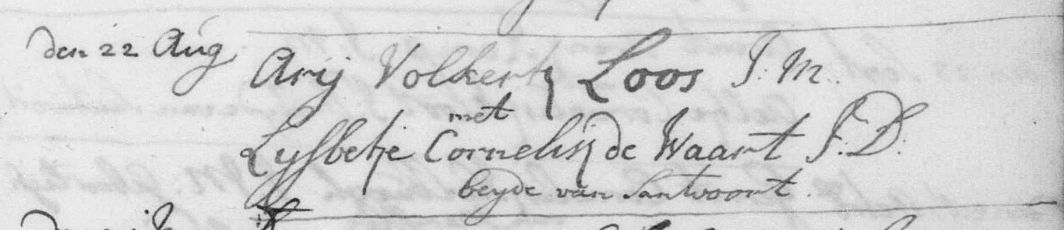 den 22 Aug Arij Volkertz Loos J. M.
met
Lysbetje Cornelisz de Waart J. D.
beyde van Santvoort.